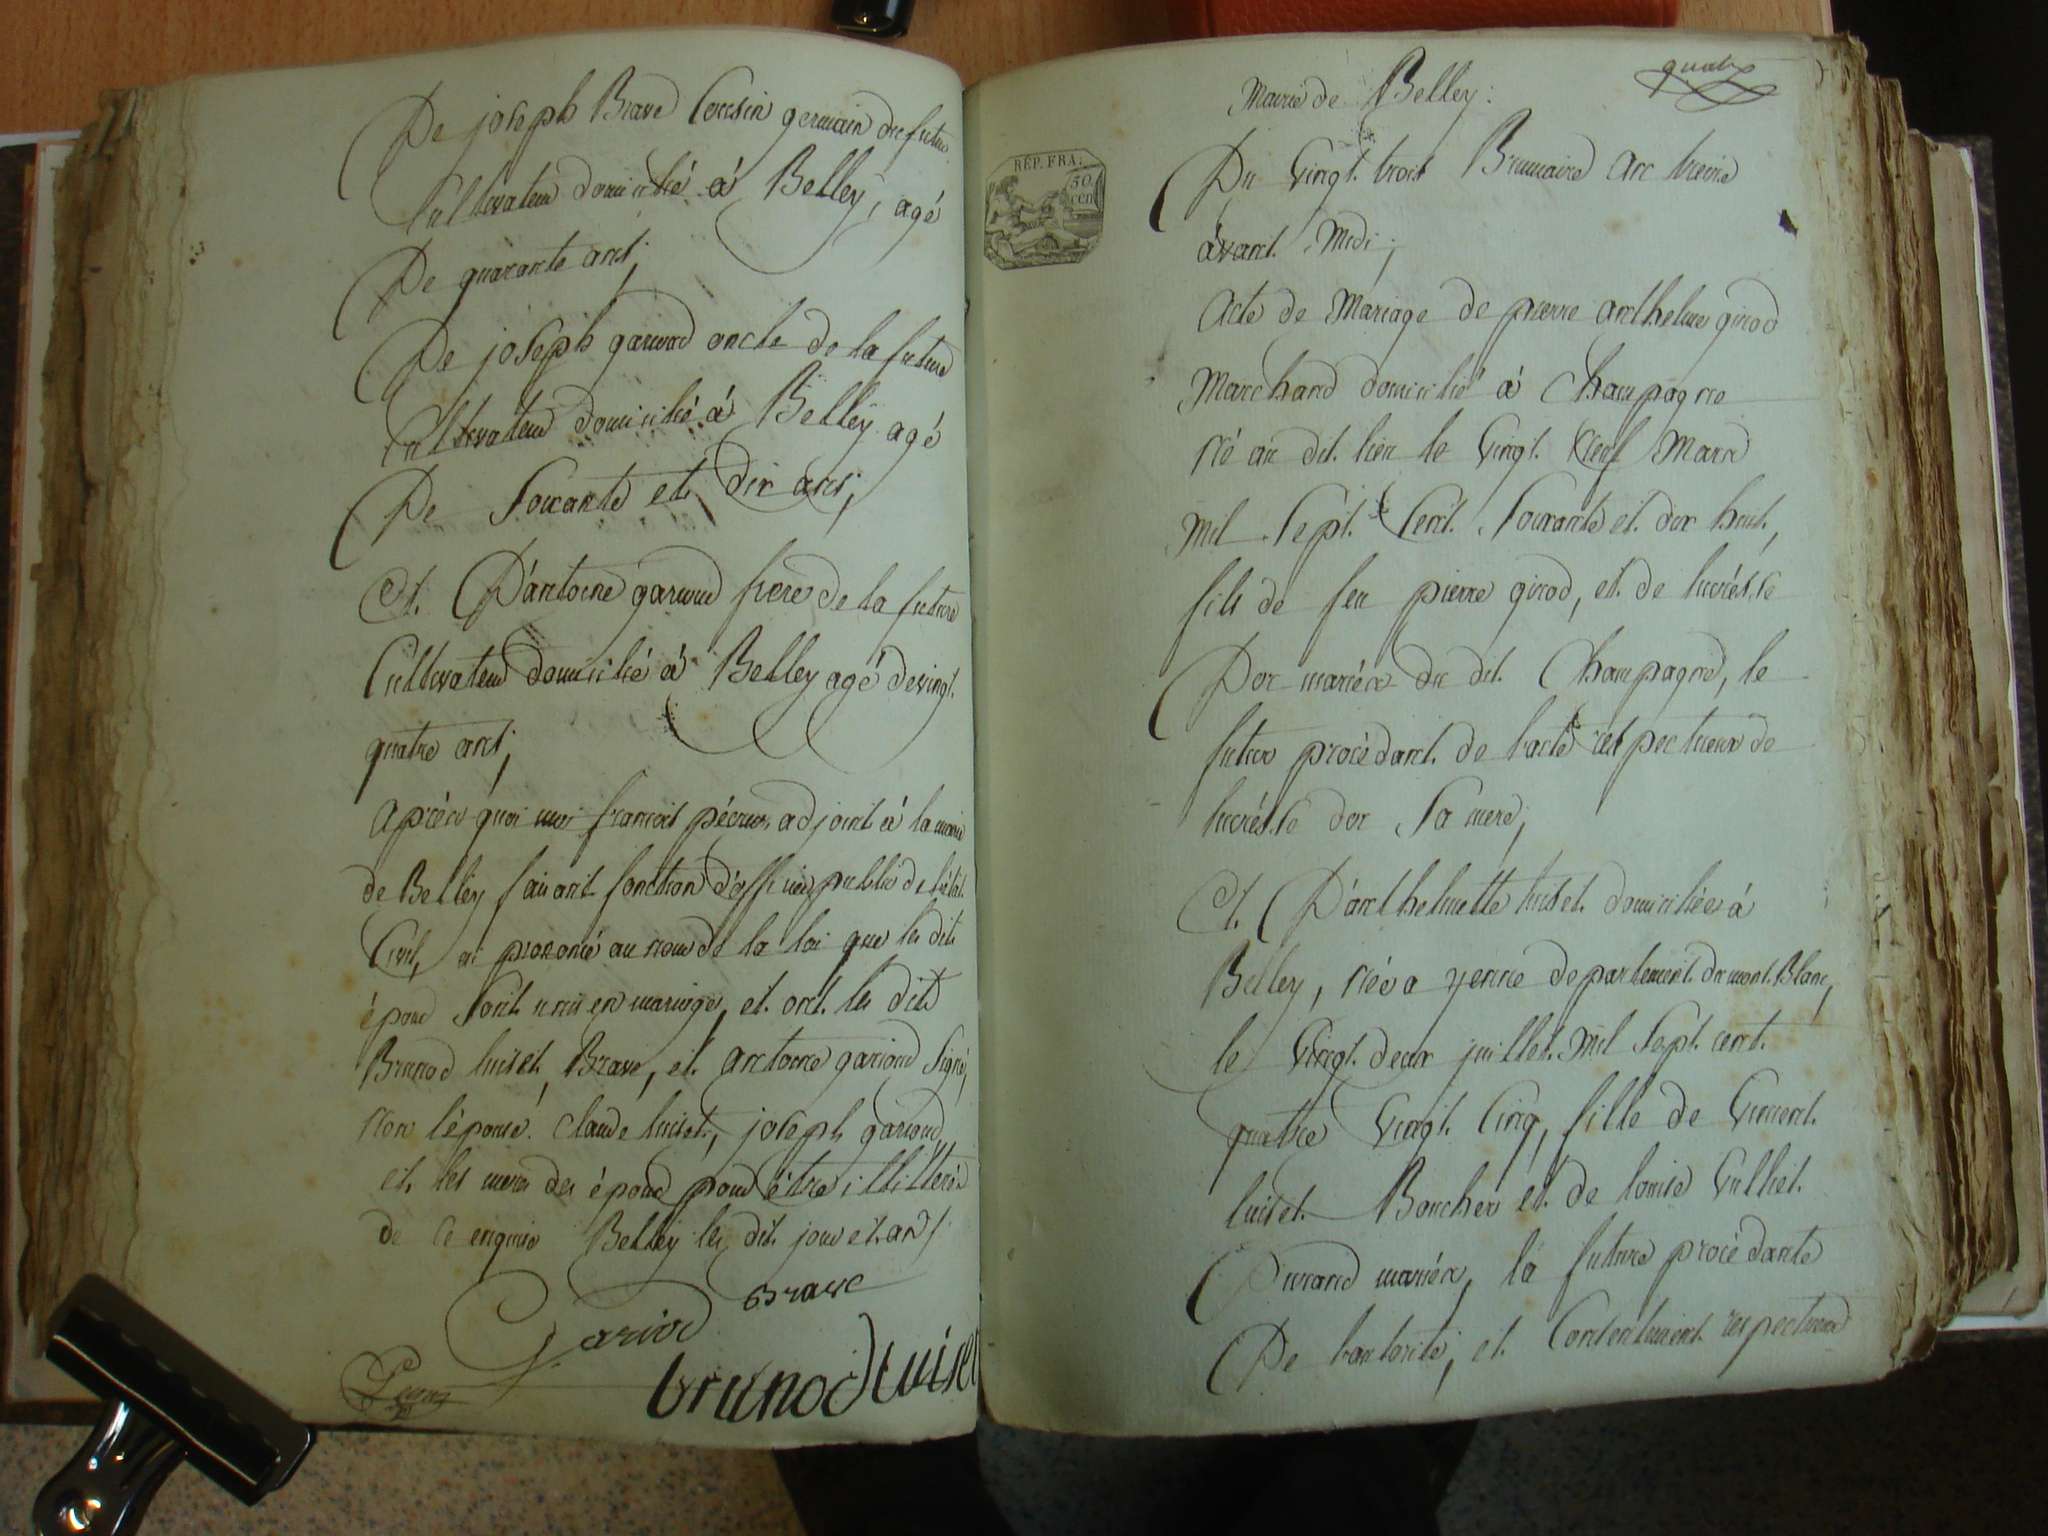 De joseph Brave Cousin germain du futur
Cultivateur domicilié á Belley, agé
De quarante ans;
De joseph gariod oncle de la future
Cultivateur domicilié á Belley agé
De Soixante et dix ans;
Et D'antoine gariod frere de la future
Cultivateur domicilié á Belley agé de vingt
quatre ans;
aprèes quoi moi francois adjoint á la mairie
de Belley faisant fonction d'officier public de l'état
Civil, ai prononcé au nom de la loi que les dits
époux Sont unis en mariage, et ont les dits
Brunod luiset, Brave, et antoine gariod Signé,
Non l'épouse. Claude luiset, joseph gariod,
et les meres des époux pour étre illittérés
de ce enquis Belley les dit jour et an
Gariod Brave
brunod luiset
quatre
Mairie de Belley:
RÉP. FRA.
50 cen
Du Vingt trois Brumaire an treize
ávant Midi;
acte de Mariage de pierre anthelme girod
Marchand domicilié á Champagne
Né au dit lieu le Vingt Neuf Mars
Mil Sept Cent Soixante et dix huit,
fils de feu pierre girod, et de lucrésse
Dor mariés du dit Champagne, le
futur procédant de l'acte respectueux de
lucrésse dor Sa mere;
Et D'anthelmette luiset domiciliée á
Belley, Née a yenne departement du mont Blanc,
le Vingt deux juillet Mil Sept cent
quatre Vingt Cinq, fille de Vincent
luiset Boucher et de louise Culliet
Durand mariés, la future procédante
De l'autorité, et Consentement respectueux